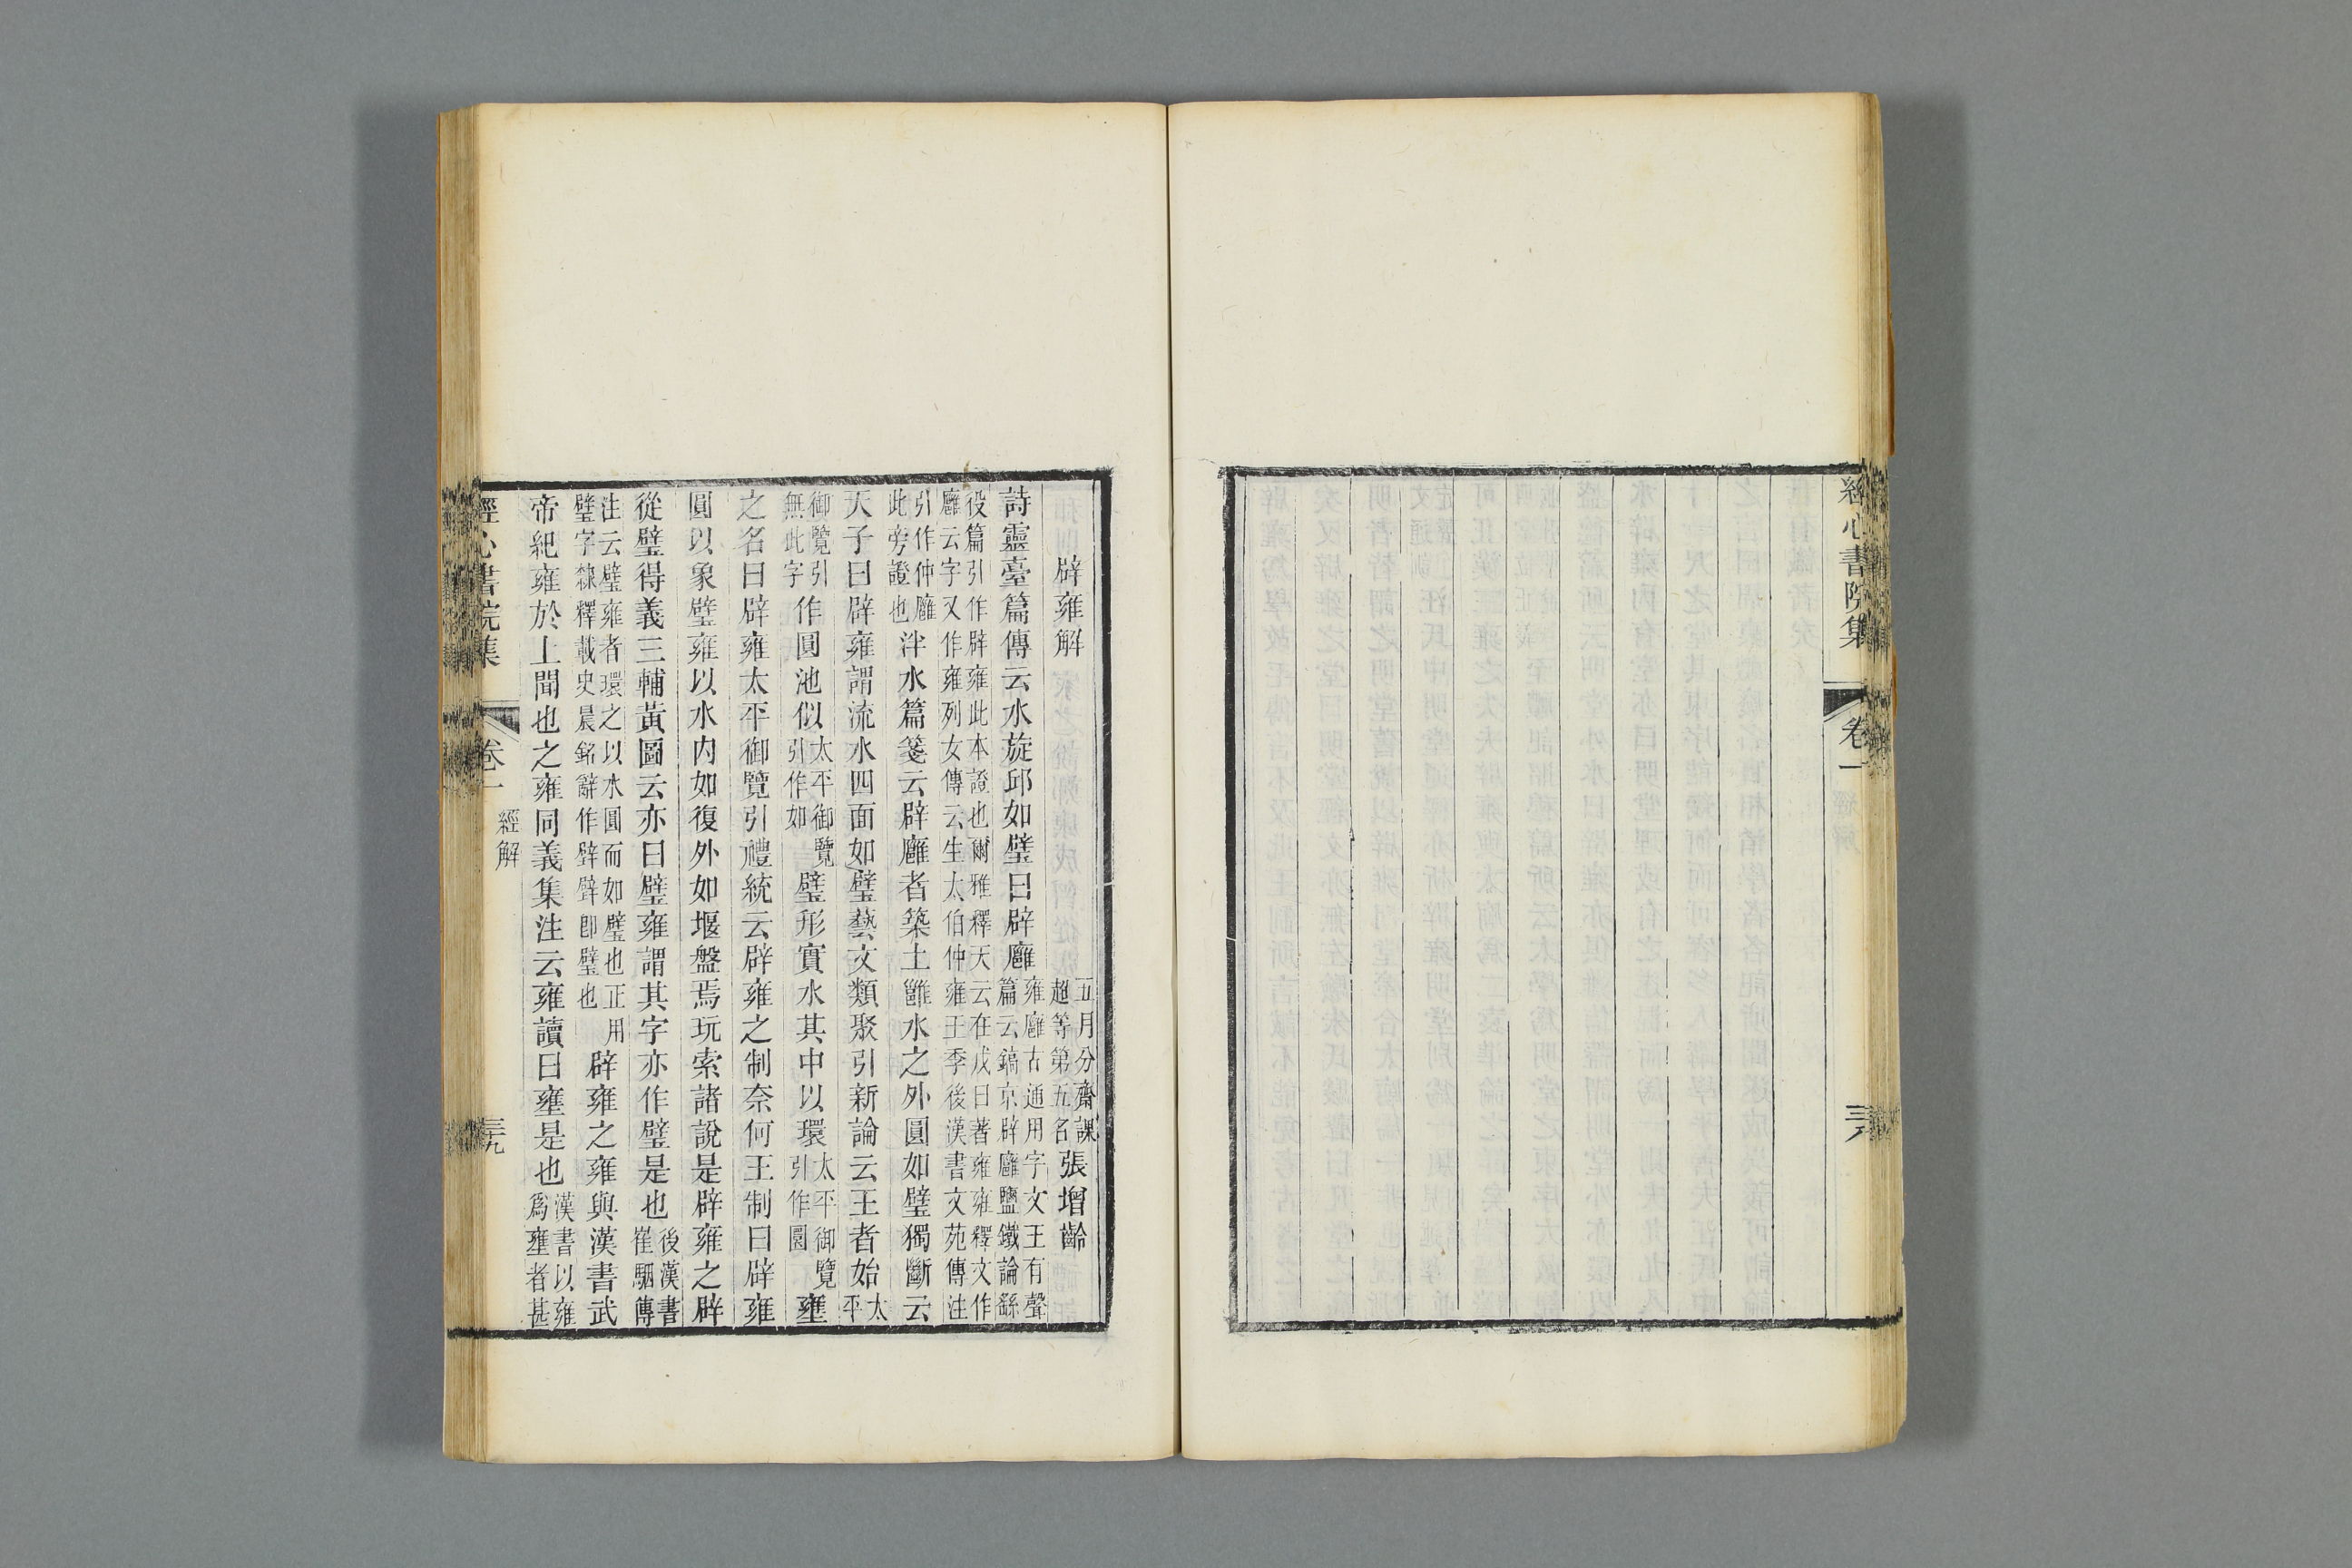 經心書院集 卷一 三八
辟雍解 五月分齋課超等第五名 張增齡
詩靈臺篇傳云水旋邱如璧曰辟廱 雍廱古通用字文王有聲篇云鎬京辟廱鹽鐵論繇
役篇引作辟雍此本證也爾雅釋天云在戊曰著雍雍釋文作廱云字又作雍列女傳云生太伯仲雍王季後漢書文苑傳注
引作仲廱此旁證也 泮水篇箋云辟廱者築土雝水之外圓如璧獨斷云
天子曰辟雍謂流水四面如璧藝文類聚引新論云王者始 太平
御覽引無此字 作圓池似 太平御覽引作如 璧形實水其中以環 太平御覽引作圜 壅
之名曰辟雍太平御覽引禮統云辟雍之制奈何王制曰辟雍
圓以象璧雍以水內如復外如堰盤焉玩索諸說是辟雍之辟
從璧得義三輔黃圖云亦曰璧雍謂其字亦作璧是也 後漢書崔駰傳
注云璧雍者環之以水圓而如璧也正用璧字隸釋載史晨銘辭作辟臂卽璧也 辟雍之雍與漢書武
帝紀雍於上聞也之雍同義集注云雍讀曰壅是也 漢書以雍爲壅者甚
經心書院集 卷一 經解 三九